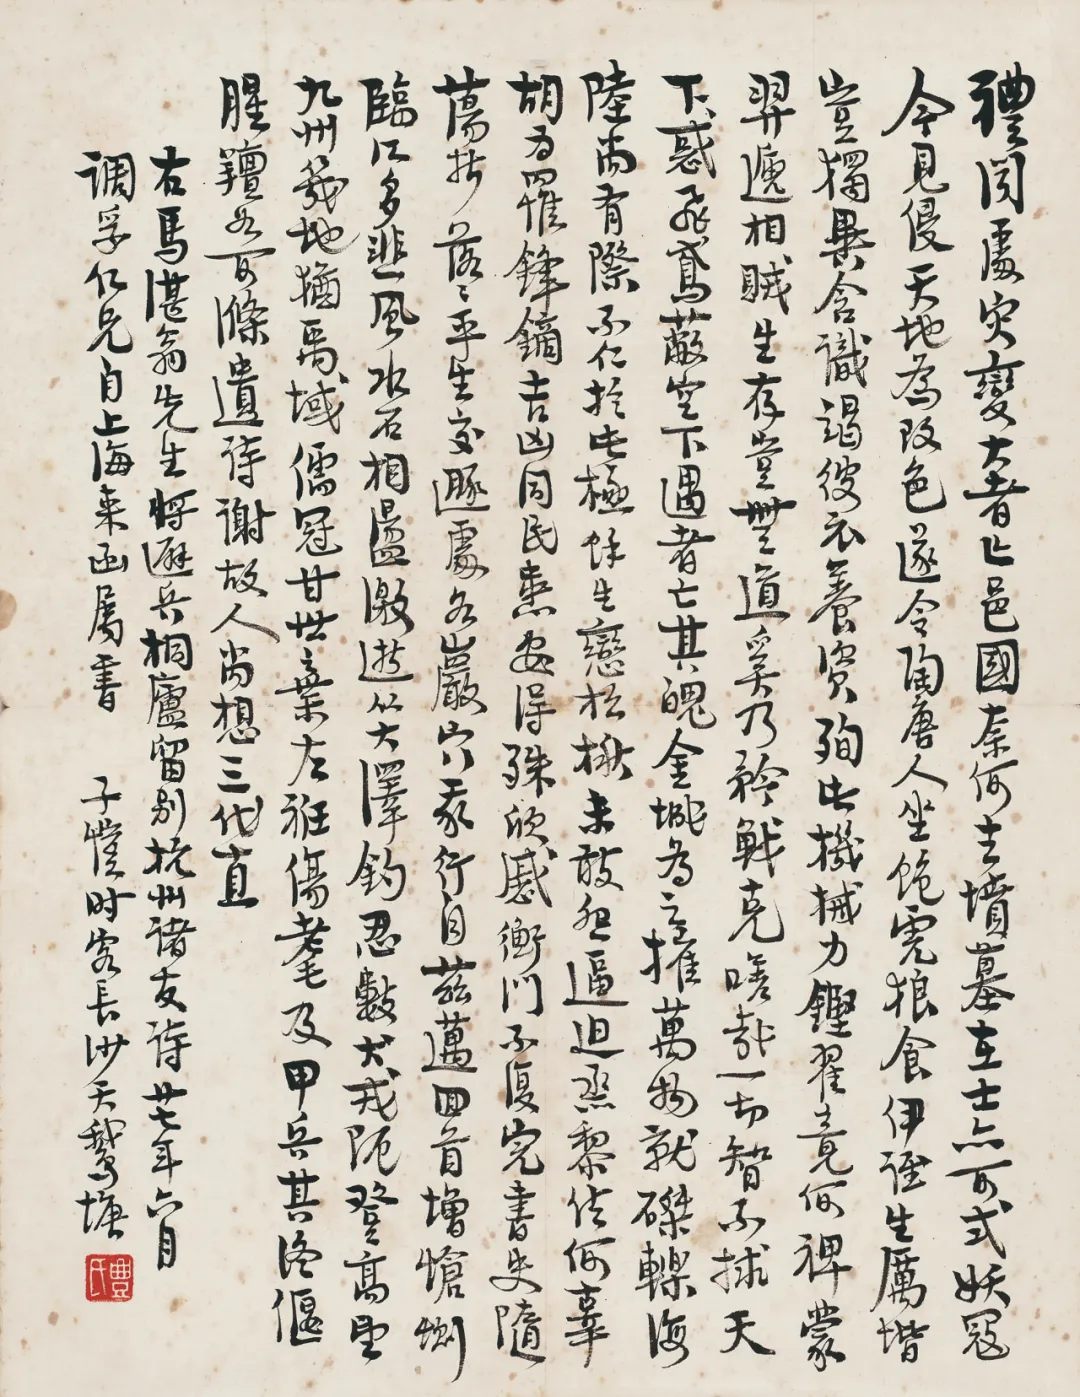 禮聞處灾變大者亡邑國奈何去墳墓在士亦可式妖寇
今見侵天地為改色遂令陶唐人坐飽虎狼食伊誰生厲堦
豈獨異含識竭彼衣養資殉此機械力鏗翟竟何裨蒙
羿遞相賊生存豈無道奚乃矜戰克嗟哉一切智不捄天
下惑飛鳶蔽空下遇者亡其魄金城為之摧萬物就磔轢海
陸尚有際不仁於此極餘生戀松楸未敢怨逼迫烝黎信何辜
胡為罹鋒鏑吉凶同民患安得殊欣慼衡門不復完書史隨
蕩析落々平生交遯處各巖穴豖行自茲邁回首增愴惻
臨江多悲風水石相盪激逝從大澤釣忍數犬戎阨登高望
九州幾地猶禹域儒冠甘世棄左衽傷耄及甲兵其終偃
腥羶如可滌遺詩謝故人尚想三代直
右馬湛翁先生將避兵桐廬留别杭州諸友詩廿七年六月
调孚仁兄自上海来函属書　子愷时客長沙天鵝塘
豐氏